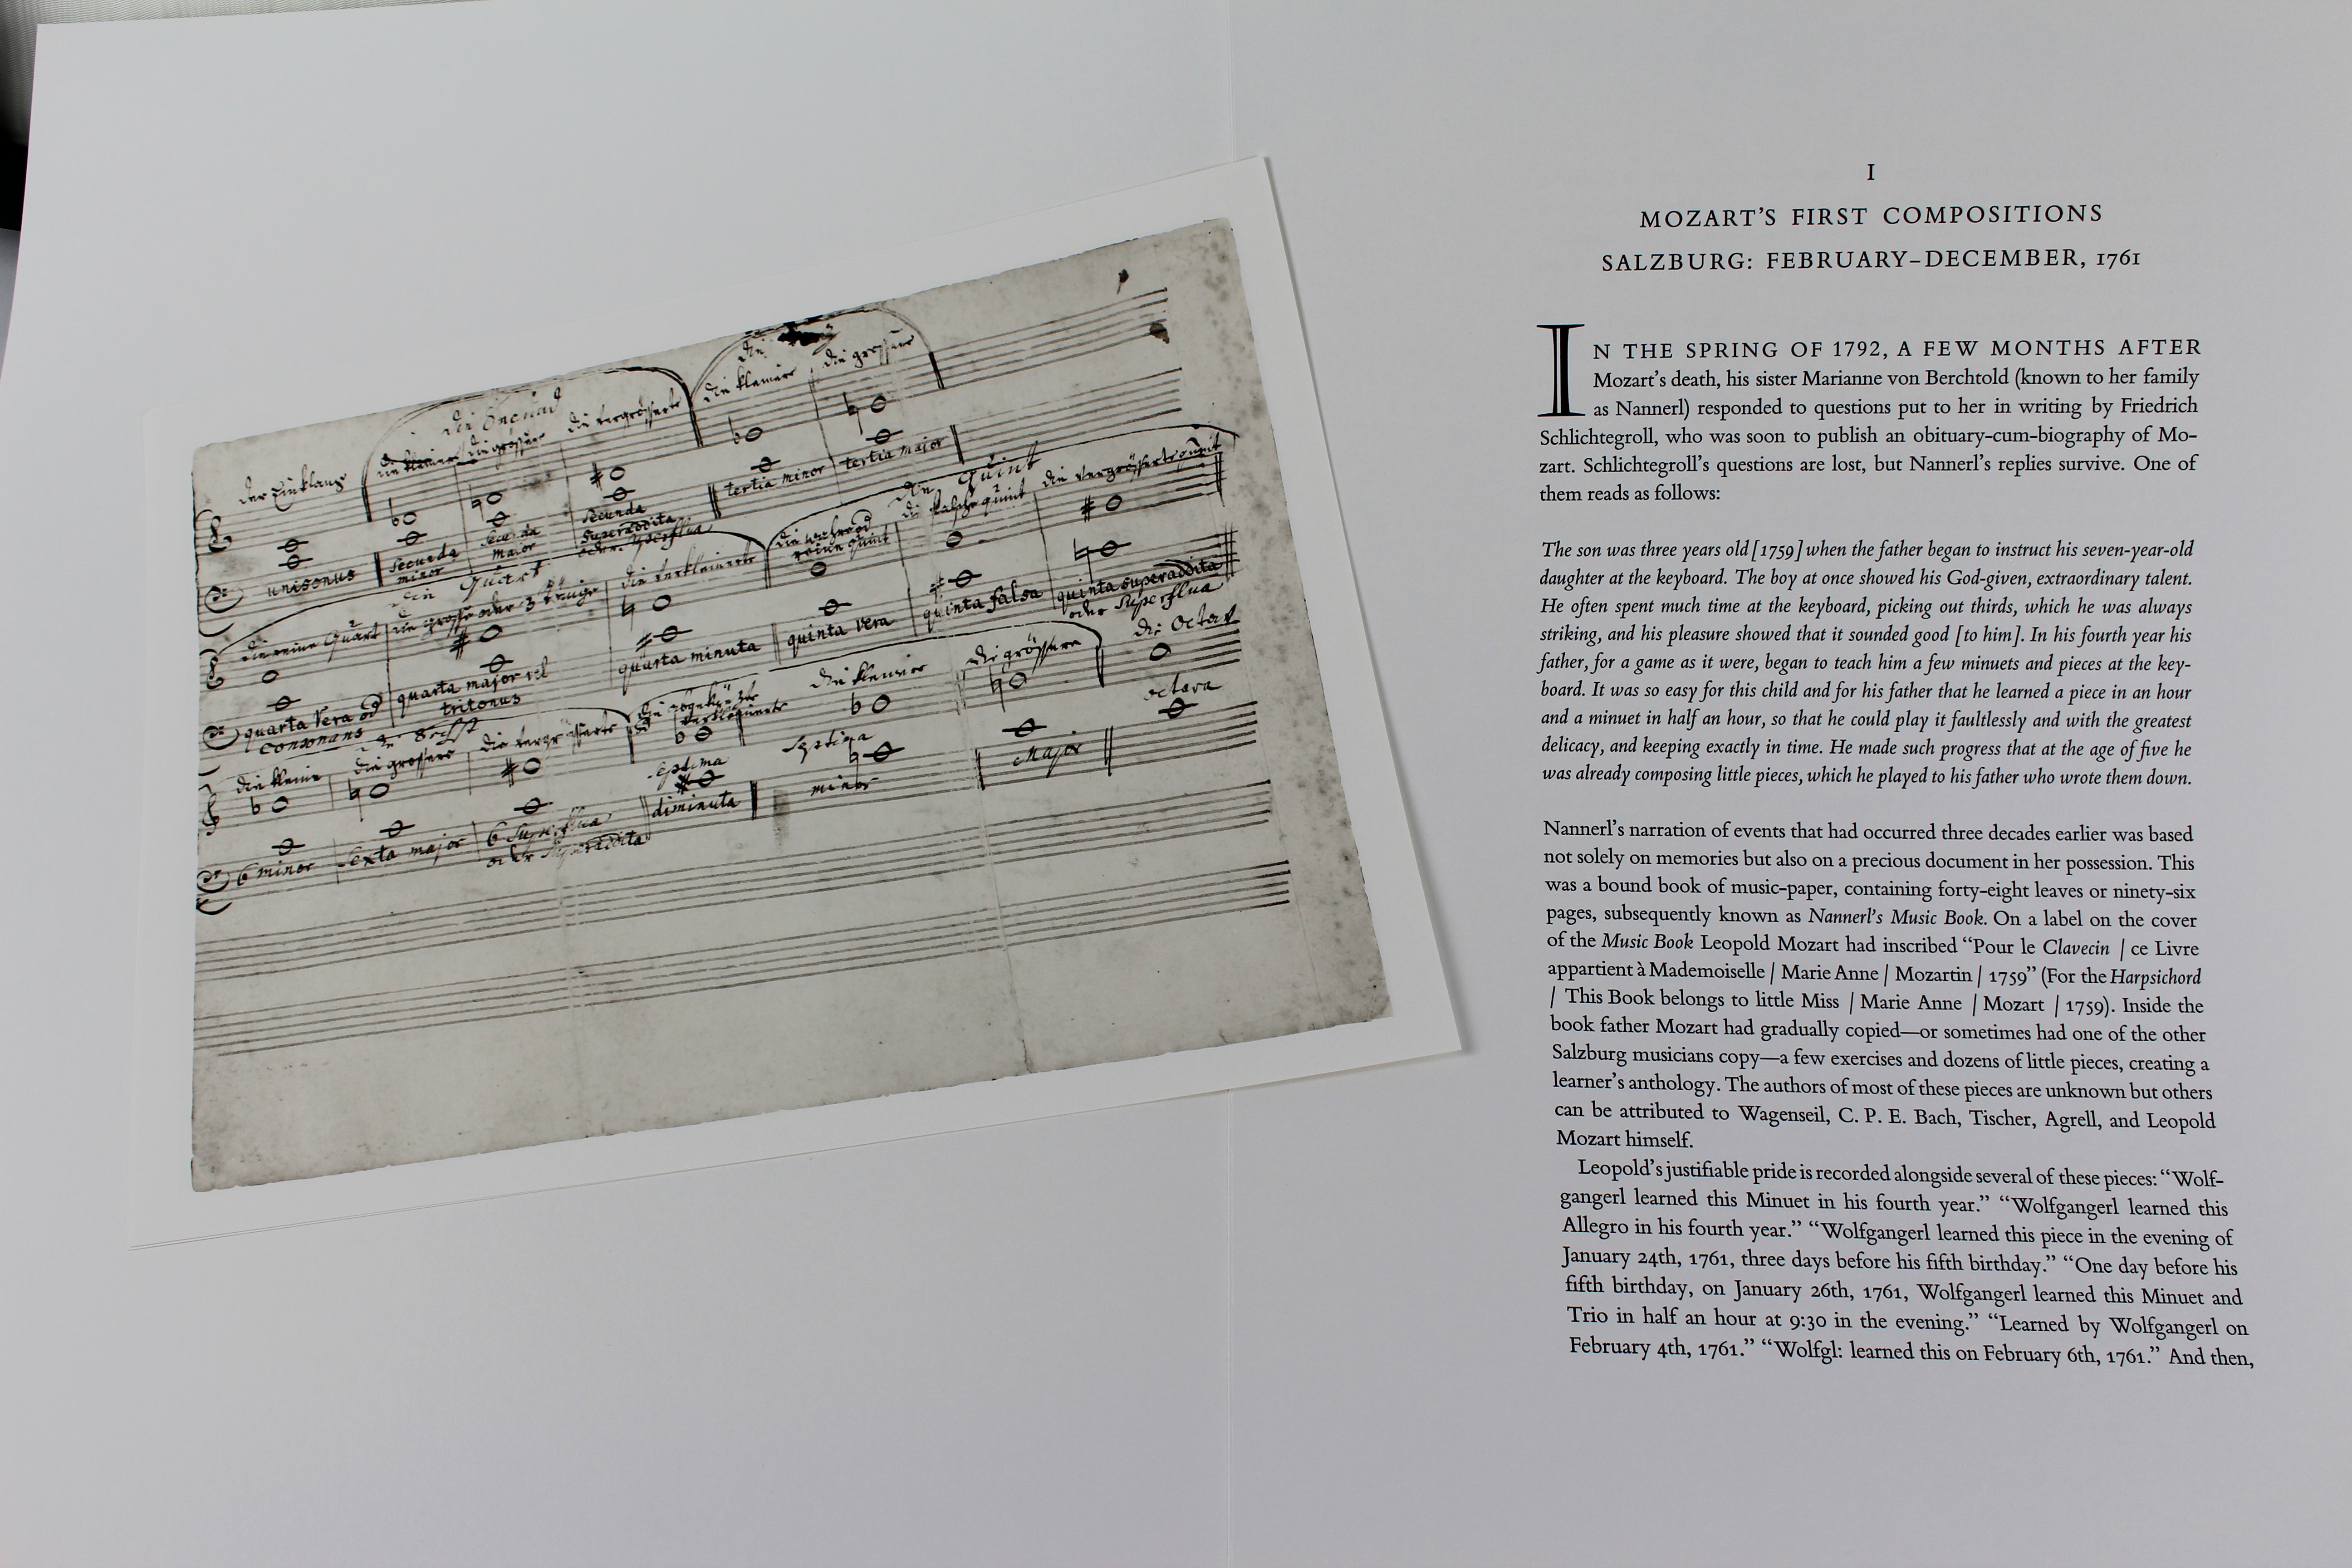 der Einklang
die Secund
die kleinere
die grössere
die vergrösserte
die
die kleinere
die grössere
unisonus
secunda minor
secunda major
secunda superaddita oder superflua
tertia minor
tertia major
die Quart
die reine Quart
die grosse oder 3 tönige
die verkleinerte
die Quint
die falsche quint
die vergrösserte quint
quarta vera od consonans
quarta major vel tritonus
quarta minuta
quinta vera
quinta falsa
quinta superaddita oder superflua
die Sext
die kleine
die grössere
die vergrösserte
die kleinere
die grössere
die Octav
6 minor
sexta major
6 superflua oder superaddita
septima diminuta
septima minor
major
octava
I
MOZART’S FIRST COMPOSITIONS
SALZBURG: FEBRUARY–DECEMBER, 1761
IN THE SPRING OF 1792, A FEW MONTHS AFTER
Mozart’s death, his sister Marianne von Berchtold (known to her family
as Nannerl) responded to questions put to her in writing by Friedrich
Schlichtegroll, who was soon to publish an obituary-cum-biography of Mo-
zart. Schlichtegroll’s questions are lost, but Nannerl’s replies survive. One of
them reads as follows:
The son was three years old [1759] when the father began to instruct his seven-year-old
daughter at the keyboard. The boy at once showed his God-given, extraordinary talent.
He often spent much time at the keyboard, picking out thirds, which he was always
striking, and his pleasure showed that it sounded good [to him]. In his fourth year his
father, for a game as it were, began to teach him a few minuets and pieces at the key-
board. It was so easy for this child and for his father that he learned a piece in an hour
and a minuet in half an hour, so that he could play it faultlessly and with the greatest
delicacy, and keeping exactly in time. He made such progress that at the age of five he
was already composing little pieces, which he played to his father who wrote them down.
Nannerl’s narration of events that had occurred three decades earlier was based
not solely on memories but also on a precious document in her possession. This
was a bound book of music-paper, containing forty-eight leaves or ninety-six
pages, subsequently known as Nannerl’s Music Book. On a label on the cover
of the Music Book Leopold Mozart had inscribed “Pour le Clavecin | ce Livre
appartient à Mademoiselle | Marie Anne | Mozartin | 1759” (For the Harpsichord
| This Book belongs to little Miss | Marie Anne | Mozart | 1759). Inside the
book father Mozart had gradually copied—or sometimes had one of the other
Salzburg musicians copy—a few exercises and dozens of little pieces, creating a
learner’s anthology. The authors of most of these pieces are unknown but others
can be attributed to Wagenseil, C. P. E. Bach, Tischer, Agrell, and Leopold
Mozart himself.
Leopold’s justifiable pride is recorded alongside several of these pieces: “Wolf-
gangerl learned this Minuet in his fourth year.” “Wolfgangerl learned this
Allegro in his fourth year.” “Wolfgangerl learned this piece in the evening of
January 24th, 1761, three days before his fifth birthday.” “One day before his
fifth birthday, on January 26th, 1761, Wolfgangerl learned this Minuet and
Trio in half an hour at 9:30 in the evening.” “Learned by Wolfgangerl on
February 4th, 1761.” “Wolfgl: learned this on February 6th, 1761.” And then,